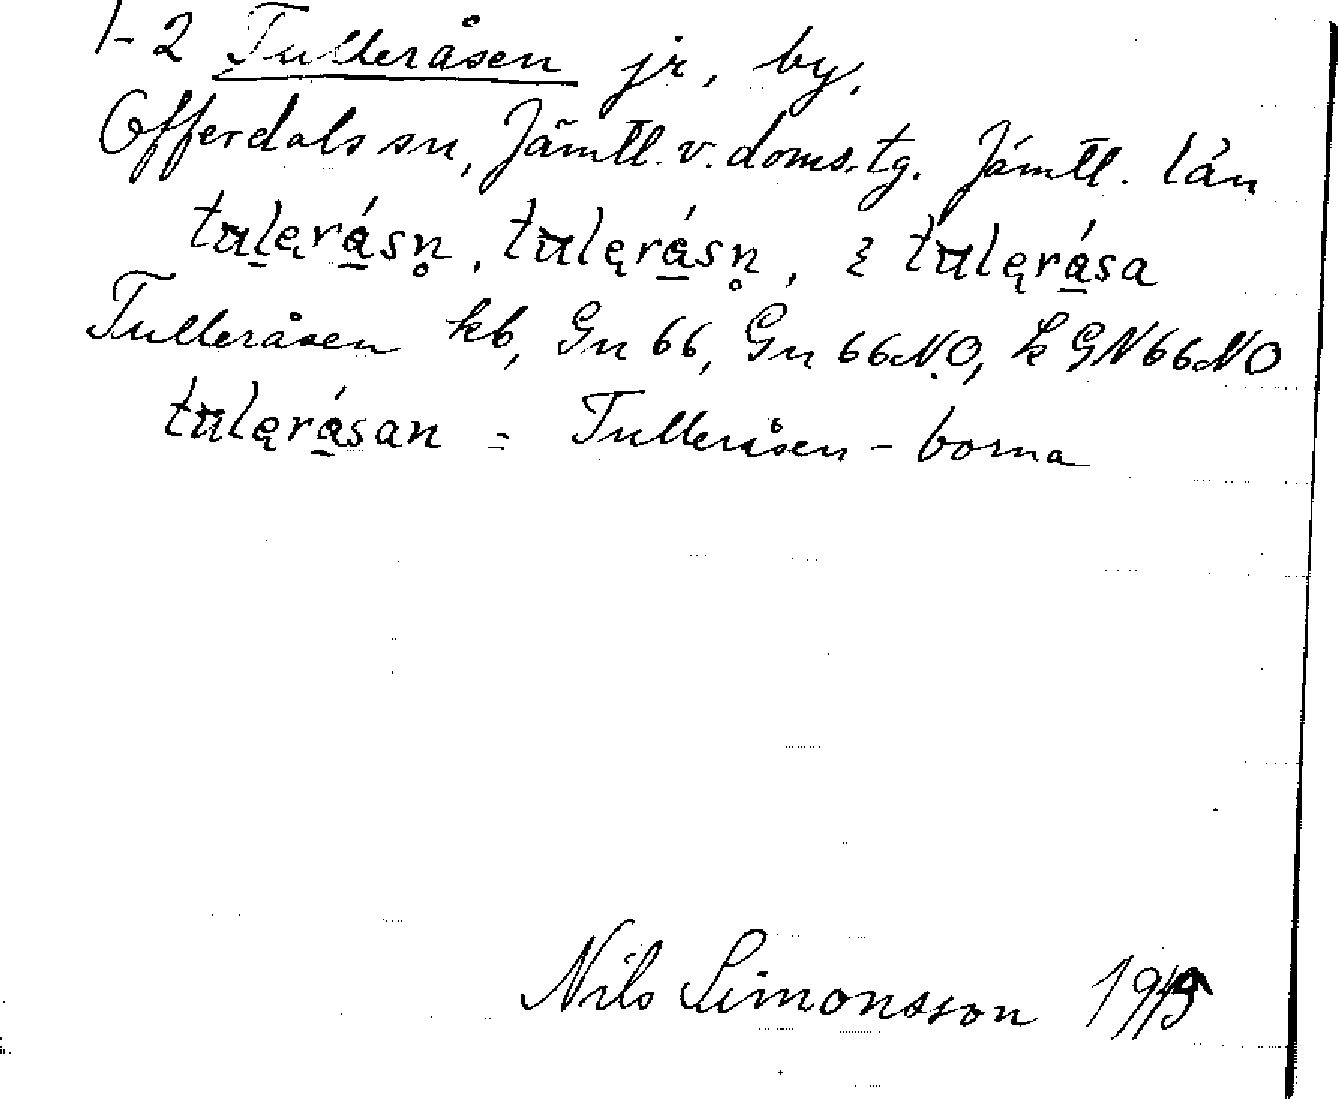 1-2 Tulleråsen jr, by,
Offerdals sn, Jämtl. v. doms. tg. Jämtl. län
tulęrásn̥, tulęrásn̥, ҙ tulęrása
Tulleråsen kb, Gn 66, Gn 66 N.O, k GN 66 NO
tulęrásan = Tulleråsen-borna
Nils Simonsson